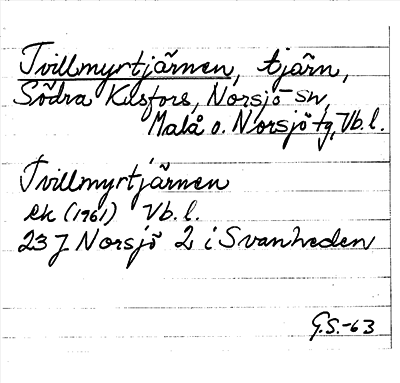 Tvillmyrtjärnen, tjärn,
Södra Kilsfors, Norsjö sn,
Malå o. Norsjö tg, Vb.l.
Tvillmyrtjärnen
ek (1961) Vb.l.
23 J Norsjö 2 i Svanheden
G.S.-63